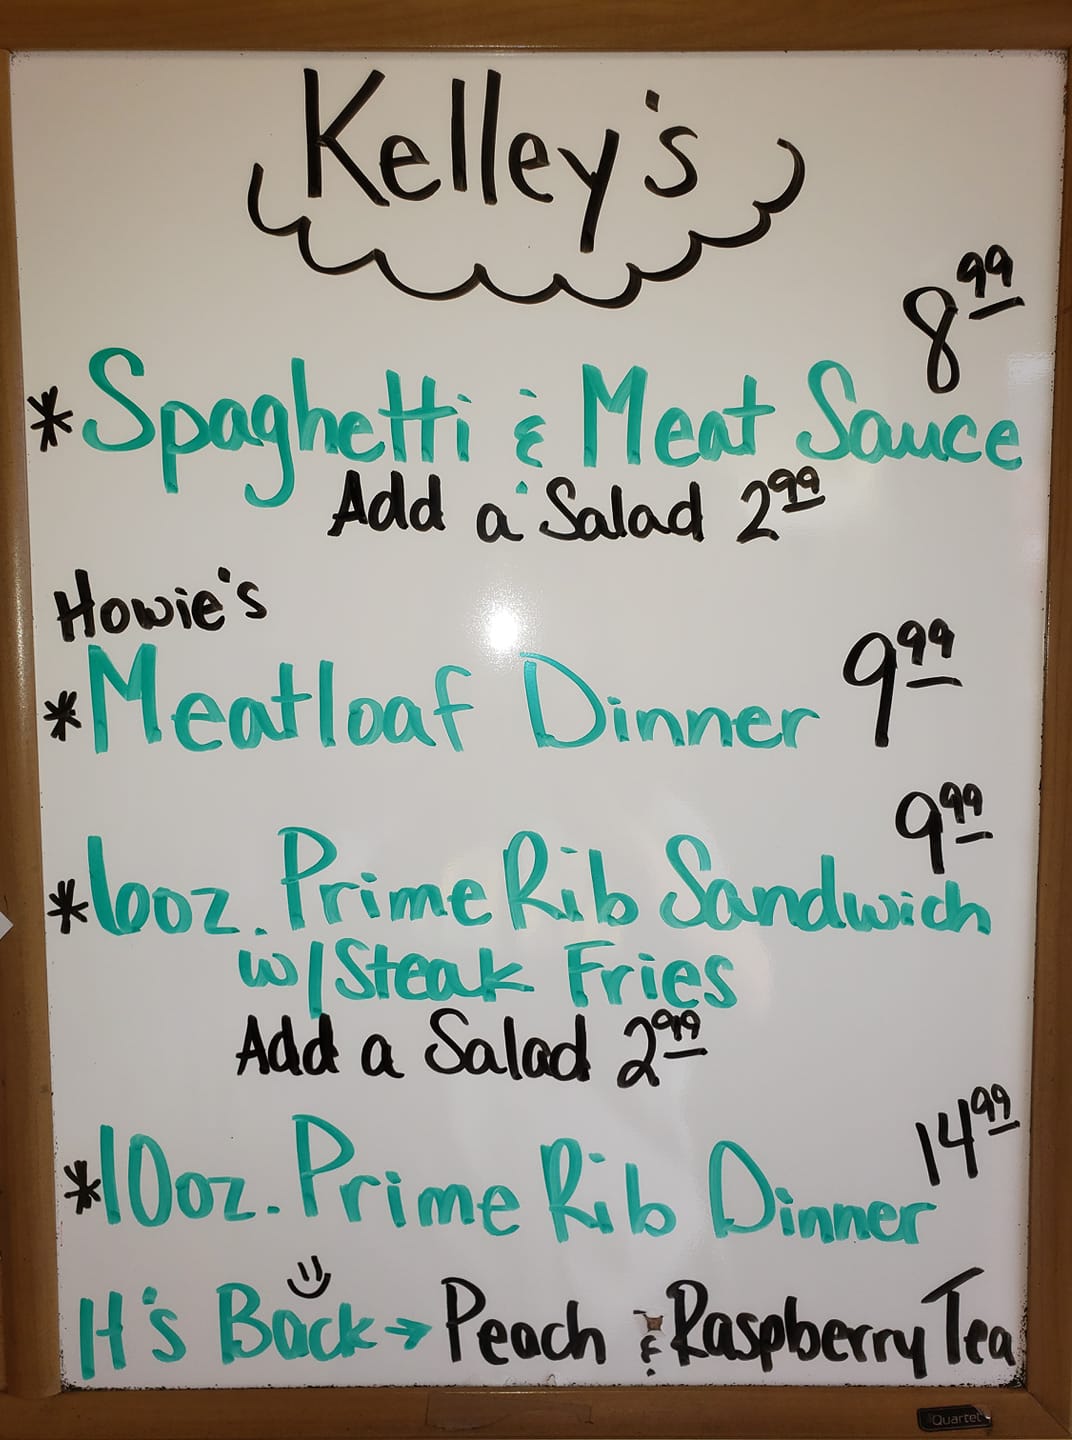 Kelley's
8.99
* Spaghetti & Meat Sauce
Add a Salad 2.99
Howie's
* Meatloaf Dinner 9.99
9.99
* 6oz. Prime Rib Sandwich
w/Steak Fries
Add a Salad 2.99
14.99
* 10oz. Prime Rib Dinner
It's Back → Peach & Raspberry Tea
Quartet